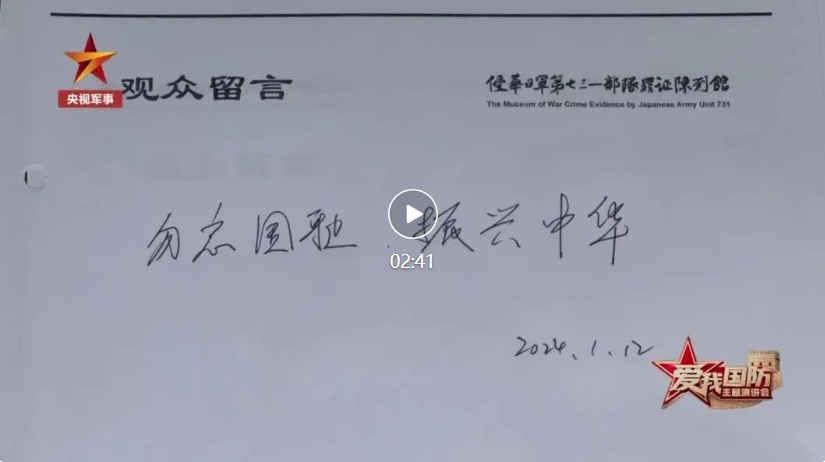 央视军事
观众留言
侵華日軍第七三一部隊罪证陳列館
The Museum of War Crime Evidence by Japanese Army Unit 731
勿忘国耻 振兴中华
02:41
2024.1.12
爱我国防
主题演讲会